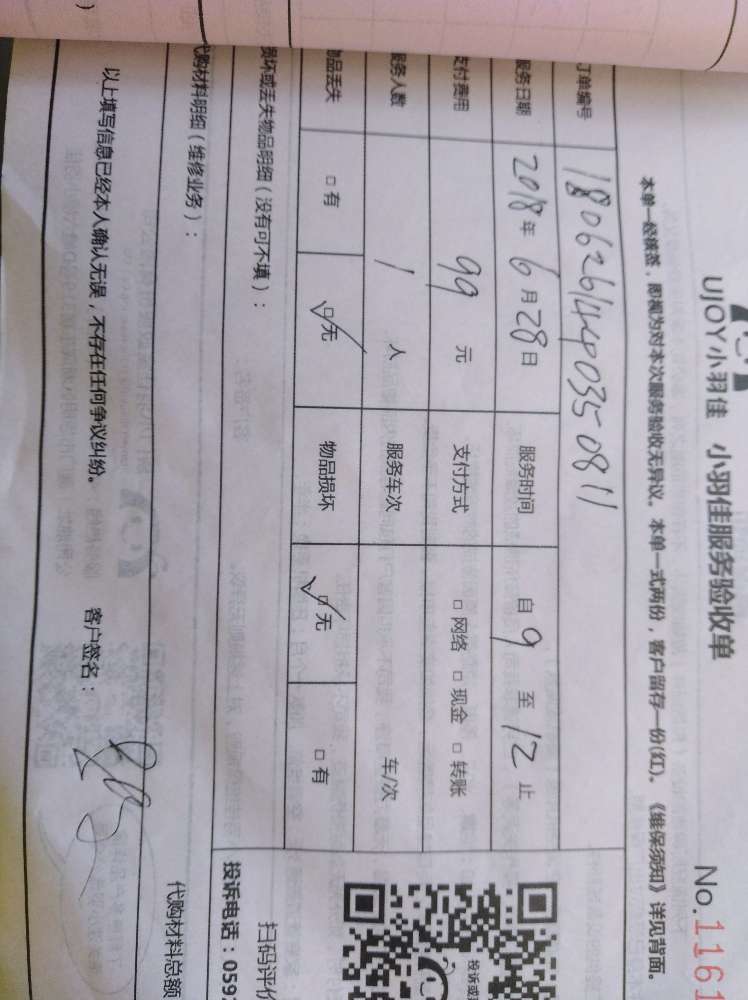 UJOY小羽佳 小羽佳服务验收单
No.1161
本单一经核签，即视为对本次服务验收无异议。本单一式两份，客户留存一份(红)。《维保须知》详见背面。
订单编号
服务日期 2018年6月28日 服务时间 自9至12止
支付费用 99元 支付方式 □网络 □现金 □转账
服务人数 1人 服务车次 车/次
物品丢失 □有 □无 物品损坏 □无 □有
损坏或丢失物品明细（没有可不填）：
代购材料明细（维修业务）：
代购材料总额
以上填写信息已经本人确认无误，不存在任何争议纠纷。 客户签名：
扫码评价
投诉电话：059
投诉或